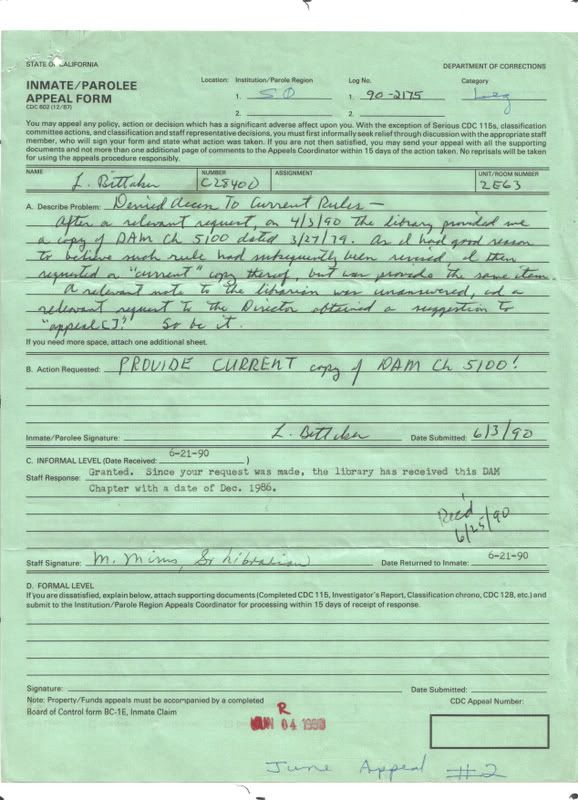 STATE OF CALIFORNIA
DEPARTMENT OF CORRECTIONS
INMATE/PAROLEE
APPEAL FORM
CDC 602 (12/87)
Location: Institution/Parole Region
Log No.
Category
1. SQ
1. 90-2175
Leg
2.
2.
You may appeal any policy, action or decision which has a significant adverse affect upon you. With the exception of Serious CDC 115s, classification
committee actions, and classification and staff representative decisions, you must first informally seek relief through discussion with the appropriate staff
member, who will sign your form and state what action was taken. If you are not then satisfied, you may send your appeal with all the supporting
documents and not more than one additional page of comments to the Appeals Coordinator within 15 days of the action taken. No reprisals will be taken
for using the appeals procedure responsibly.
NAME
NUMBER
ASSIGNMENT
UNIT/ROOM NUMBER
L. Bittaker
C28400
2EG3
A. Describe Problem: Denied Access To Current Rules —
After a relevant request, on 4/3/90 the library provided me
a copy of DAM Ch 5100 dated 3/27/79. As I had good reason
to believe such rule had subsequently been revised, I then
requested a "current" copy thereof, but was provided the same item.
A relevant note to the librarian was unanswered, and a
relevant request to the Director obtained a suggestion to
"appeal[]." So be it.
If you need more space, attach one additional sheet.
B. Action Requested: PROVIDE CURRENT copy of DAM Ch 5100!
Inmate/Parolee Signature: L. Bittaker Date Submitted: 6/3/90
C. INFORMAL LEVEL (Date Received: 6-21-90 )
Staff Response: Granted. Since your request was made, the library has received this DAM
Chapter with a date of Dec. 1986.
Rec'd
6/25/90
Staff Signature: M. Mims, Sr Librarian Date Returned to Inmate: 6-21-90
D. FORMAL LEVEL
If you are dissatisfied, explain below, attach supporting documents (Completed CDC 115, Investigator's Report, Classification chrono, CDC 128, etc.) and
submit to the Institution/Parole Region Appeals Coordinator for processing within 15 days of receipt of response.
Signature: Date Submitted:
Note: Property/Funds appeals must be accompanied by a completed
CDC Appeal Number:
Board of Control form BC-1E, Inmate Claim
R
JUN 04 1990
June Appeal #2